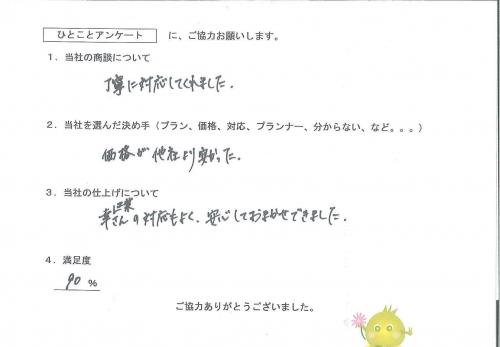 ひとことアンケート に、ご協力お願いします。
1．当社の商談について
丁寧に対応してくれました.
2．当社を選んだ決め手（プラン、価格、対応、プランナー、分からない、など。。。）
価格が他社より安かった.
3．当社の仕上げについて
さんの対応もよく、安心しておまかせできました.
4．満足度
90 %
ご協力ありがとうございました。